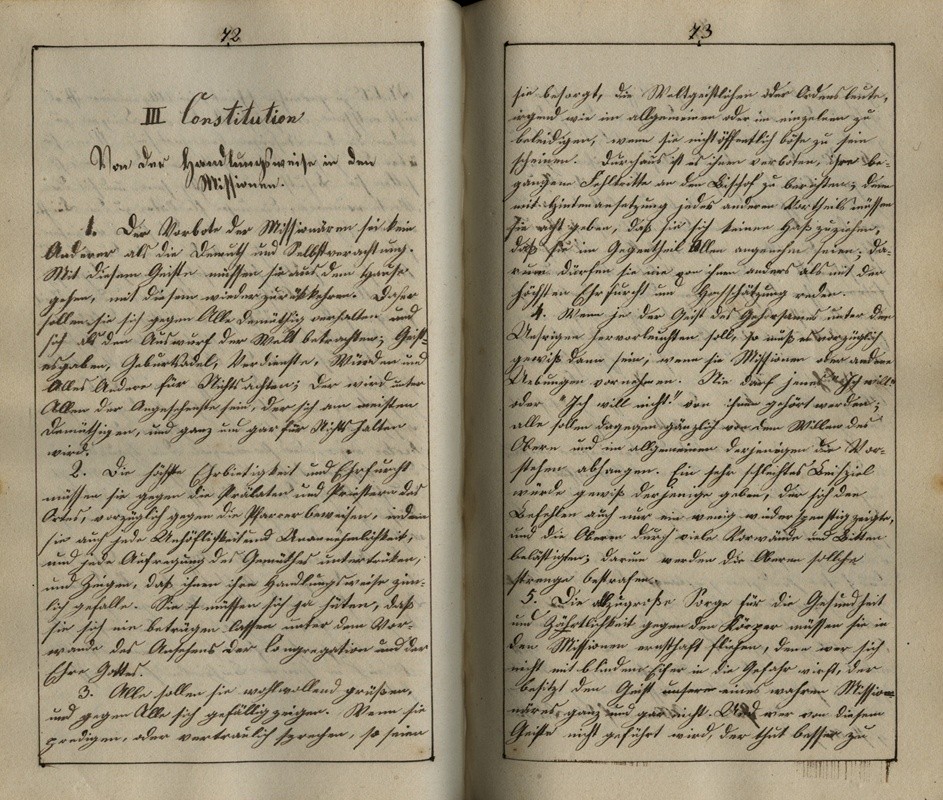 72
III Constitution
Von der Handlungsweise in den
Missionen.
1. Der Vorbote der Missionären sei kein
Anderer als die Demuth und Selbstverachtung.
Mit diesem Geiste müssen sie aus dem Hause
gehen, mit diesem wieder zurükkehren. Daher
sollen sie sich gegen Alle demüthig verhalten und
sich als den Auswurf der Welt betrachten; Geist-
esgaben, Geburtsadel, Verdienste, Würden und
Alles Andere für Nichts achten; Der wird unter
Allen der Angesehenste sein, der sich am meisten
demüthigen, und ganz und gar für Nichts halten
wird.
2. Die höchste Ehrbietigkeit und Ehrfurcht
müssen sie gegen die Prälaten und Priestern des
Ortes, vorzüglich gegen die Pfarrer beweisen, indem
sie auch jede Unhöflichkeit und Unannehmlichkeit,
und jede Aufregung des Gemüthes unterdrüken,
und zeigen, daß ihnen ihre Handlungsweise ziem-
lich gefalle. Sie müssen sich ja hüten, daß
sie sich nie betrügen lassen unter dem Vor-
wande des Ansehens der Congregation und der
Ehre Gottes.
3. Alle sollen sie wohlwollend grüßen,
und gegen Alle sich gefällig zeigen. Wenn sie
predigen, oder vertraulich sprechen, so seien
73
sie besorgt, die Weltgeistlichen oder Ordensleute,
irgend wie im allgemeinen oder im einzelnen zu
beleidigen, wenn sie nicht öffentlich böse zu sein
scheinen. Durchaus ist es ihnen verboten, ihre be-
gangene Fehltritte an den Bischof zu berichten; denn
mit Hintenansetzung jedes anderen Vortheils müssen
sie acht geben, daß sie sich keinen Haß zuziehen,
daß sie im Gegentheil Allen angenehm seien; da-
rum dürfen sie nie von ihnen anders als mit der
höchsten Ehrfurcht und Hochschätzung reden.
4. Wenn je der Geist des Gehorsames unter den
Unsrigen hervorleuchten soll, so muß es vorzüglich
gewiß dann sein, wenn sie Missionen oder andere
Uebungen vornehmen. Nie darf jenes "Ich will"
oder "Ich will nicht" von ihnen gehört werden;
alle sollen dagegen gänzlich von dem Willen des
Obern und im allgemeinen derjenigen die Vor-
stehen abhangen. Ein sehr schlechtes Beispiel
würde gewiß derjenige geben, der sich den
Befehlen auch nur ein wenig wiederspenstig zeigte,
und die Oberen durch viele Vorwände und Bitten
belästigten; darum werden die Oberen solche
strenge bestrafen.
5. Die allzugroße Sorge für die Gesundheit
und Zährtlichkeit gegen den Körper müssen sie in
den Missionen ernsthaft fliehen, denn wer sich
nicht mit blindem Eifer in die Gefahr wirft, der
besitzt den Geist eines wahren Missio-
närs ganz und gar nicht. Und wer von diesem
Geiste nicht geführt wird, der thut besser zu